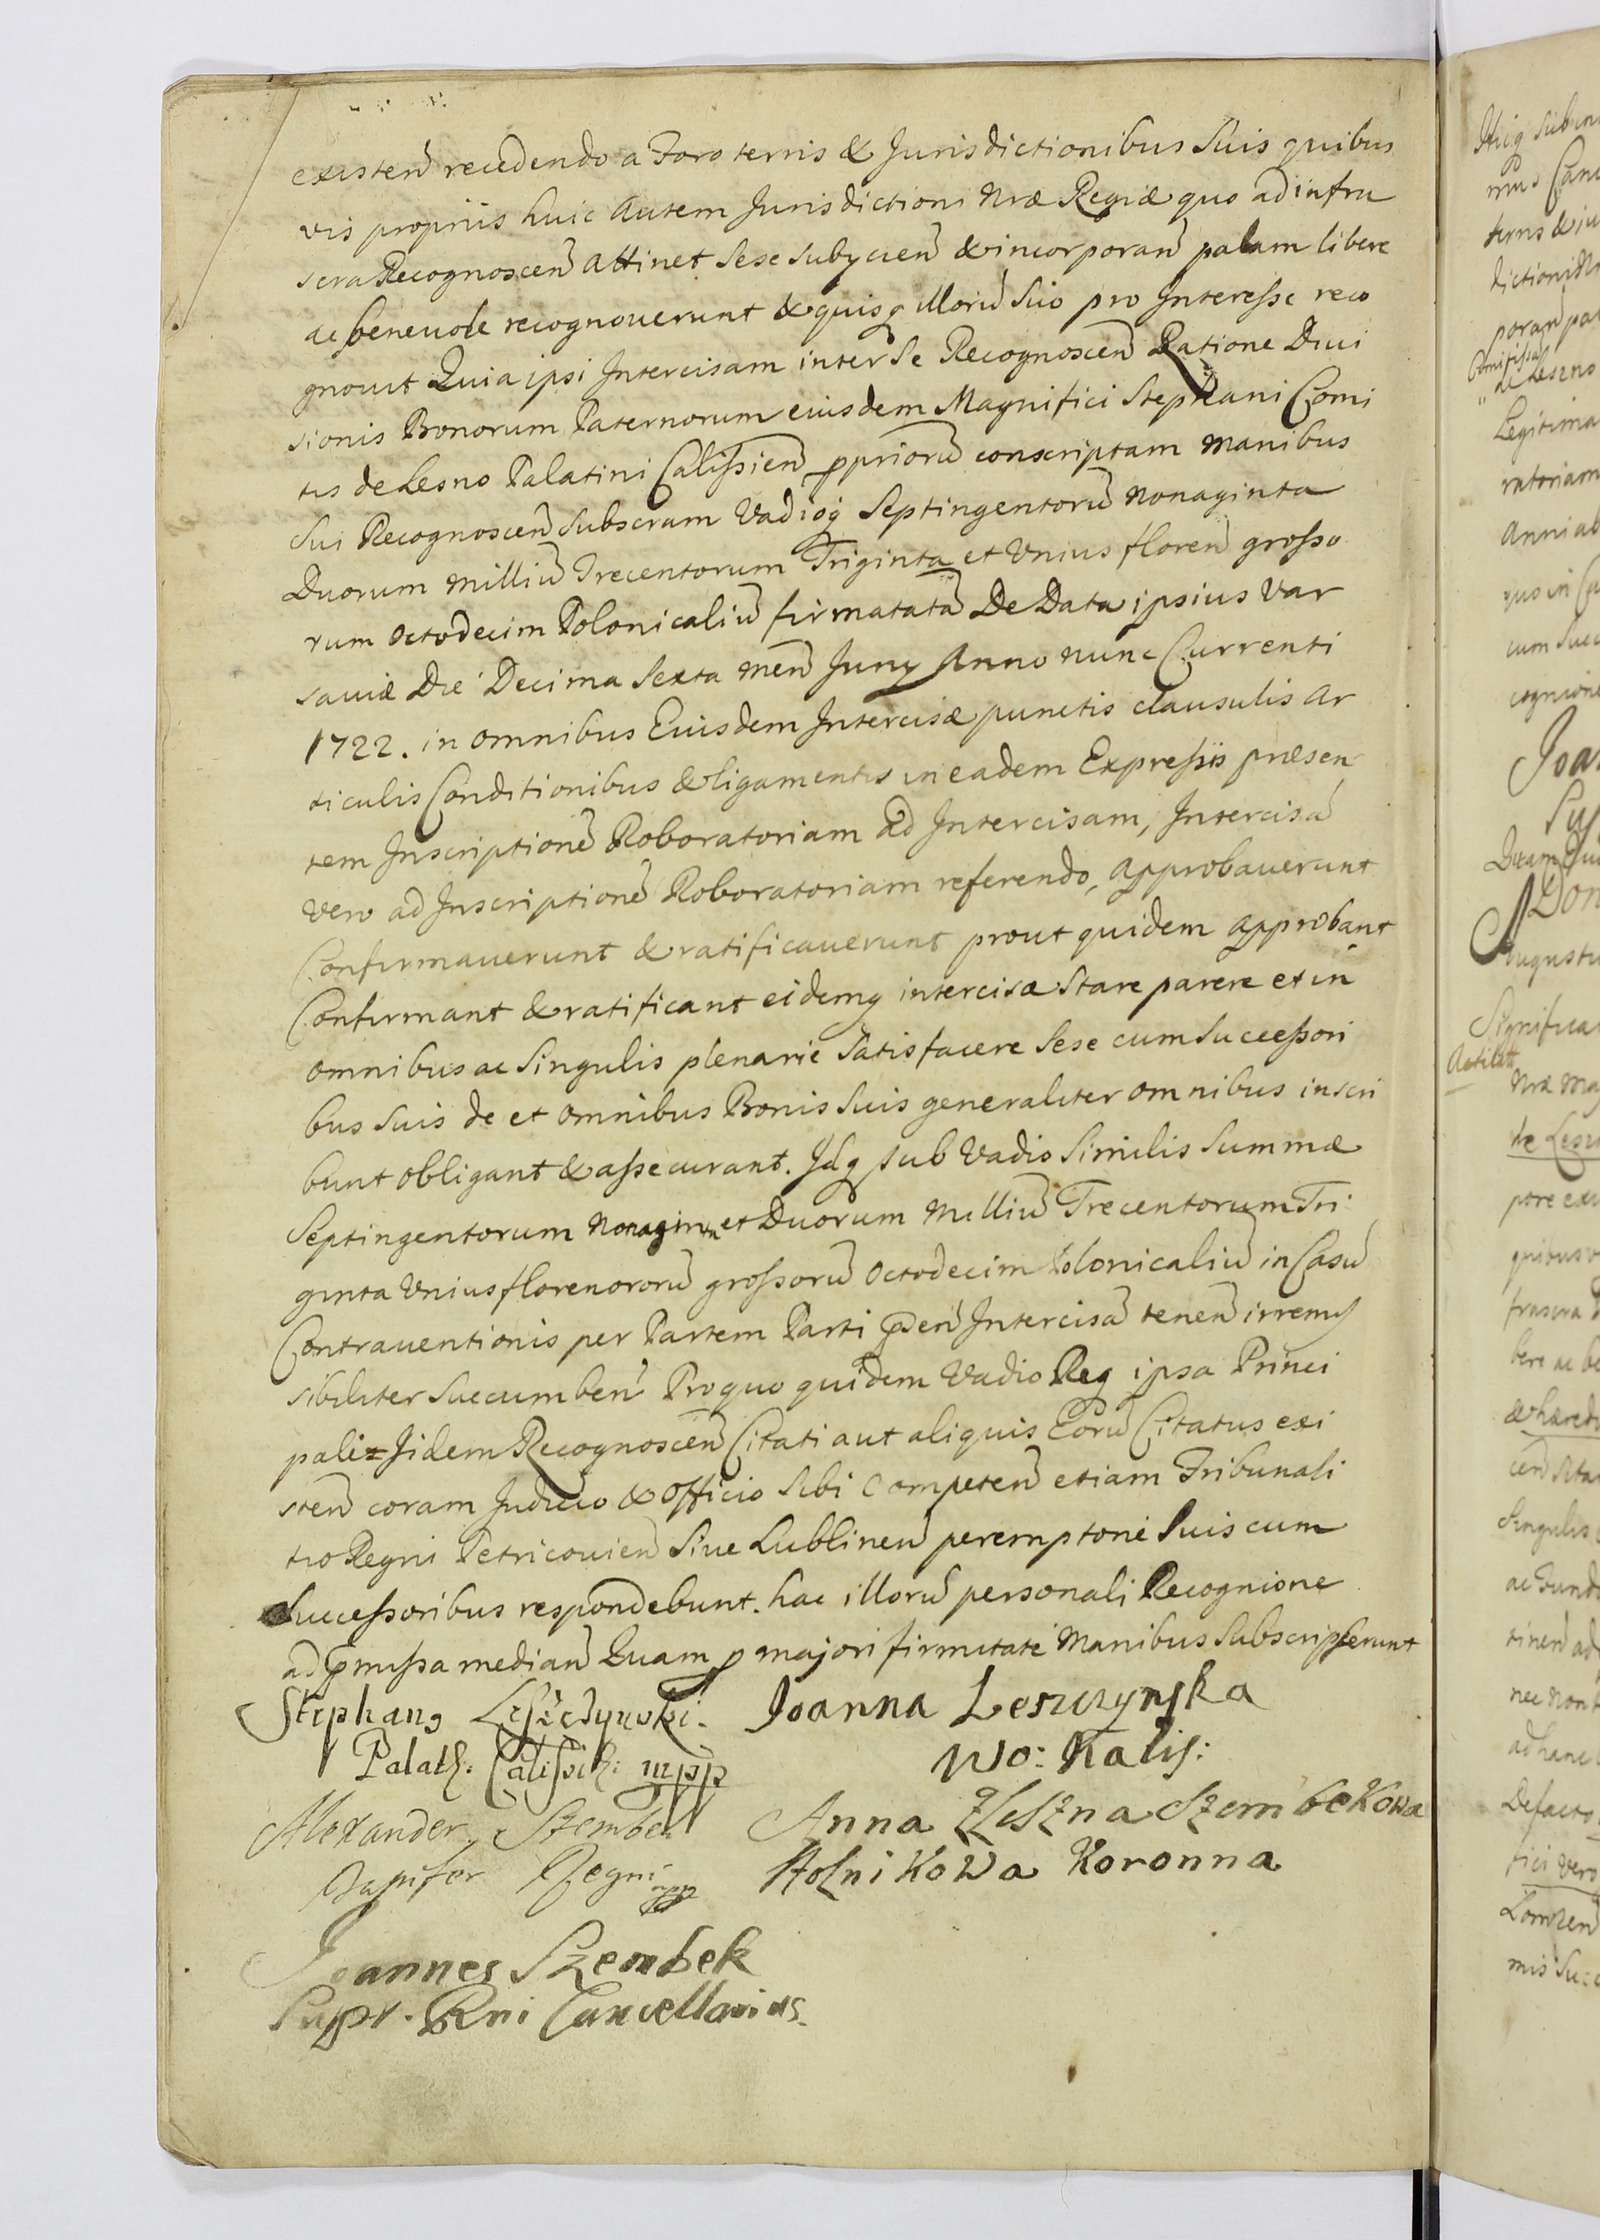 existen̄ recedendo a Foro terris & Jurisdictionibus Suis quibus
vis propriis huic Autem Jurisdictioni Nræ Regiæ quo ad infra
scra Recognoscen̄ attinet Sese Subycien̄ & incorporan̄ palam libere
ac benevole recognouerunt & quisq illorū Suo pro Interesse reco
gnouit Quia ipsi Intercisam inter Se Recognoscen̄ Ratione Diui
sionis Bonorum Paternorum eiusdem Magnifici Stephani Comi
tis de Lesno Palatini Calissien̄ ppriorū conscriptam Manibus
Sui Recognoscen̄ Subscram Vadioq Septingentorū Nonaginta
Duorum Milliū Trecentorum Triginta et Vnius floren̄ grosso
rum Octodecim Polonicaliū firmatatā De Data ipsius Var
saviæ Die Decima Sexta Men̄ Juny Anno nunc Currenti
1722. in omnibus Eiusdem Intercisæ punctis clausulis Ar
ticulis Conditionibus & ligamentis in eadem Expressis præsen
tem Inscriptionē Roboratoriam ad Intercisam, Intercisā
Vero ad Inscriptionē Roboratoriam referendo, approbauerunt
Confirmauerunt & ratificauerunt prout quidem approbant
Confirmant & ratificant eidemq intercisæ Stare parere et in
omnibus ac Singulis plenarie Satisfacere Sese cum Successori
bus Suis de et omnibus Bonis Suis generaliter omnibus inscri
bunt obligant & assecurant. Idq sub Vadio Similis Summæ
Septingentorum Nonaginta et Duorum Milliū Trecentorum Tri
ginta Vnius florenororū grossorū Octodecim Polonicaliū in Casū
Contrauentionis per Partem Parti p̄den̄ Intercisā tenen̄ irremis
sibiliter Succumben̄ Pro quo quidem Vadio Req ipsa Princi
pali Iidem Recognoscen̄ Citati aut aliquis Eorū Citatus exi
sten̄ coram Judicio & Officio Sibi Competen̄ etiam Tribunali
tio Regni Petricouien̄ Siue Lublinen̄ peremptorie Suis cum
Successoribus respondebunt. hac illorū personali Recognione
ad p̄missa median̄ Quam p majori firmitate Manibus Subscripserunt
Stephang Leszczynski. Joanna Leszczynska
Palat: Calissie: mpp Wo: Kalis:
Alexander Szembek Anna Zleszna Szembekowa
Dapifer Regni mpp Stolnikowa Koronna
Joannes Szembek
Supr. Rni Cancellarius.